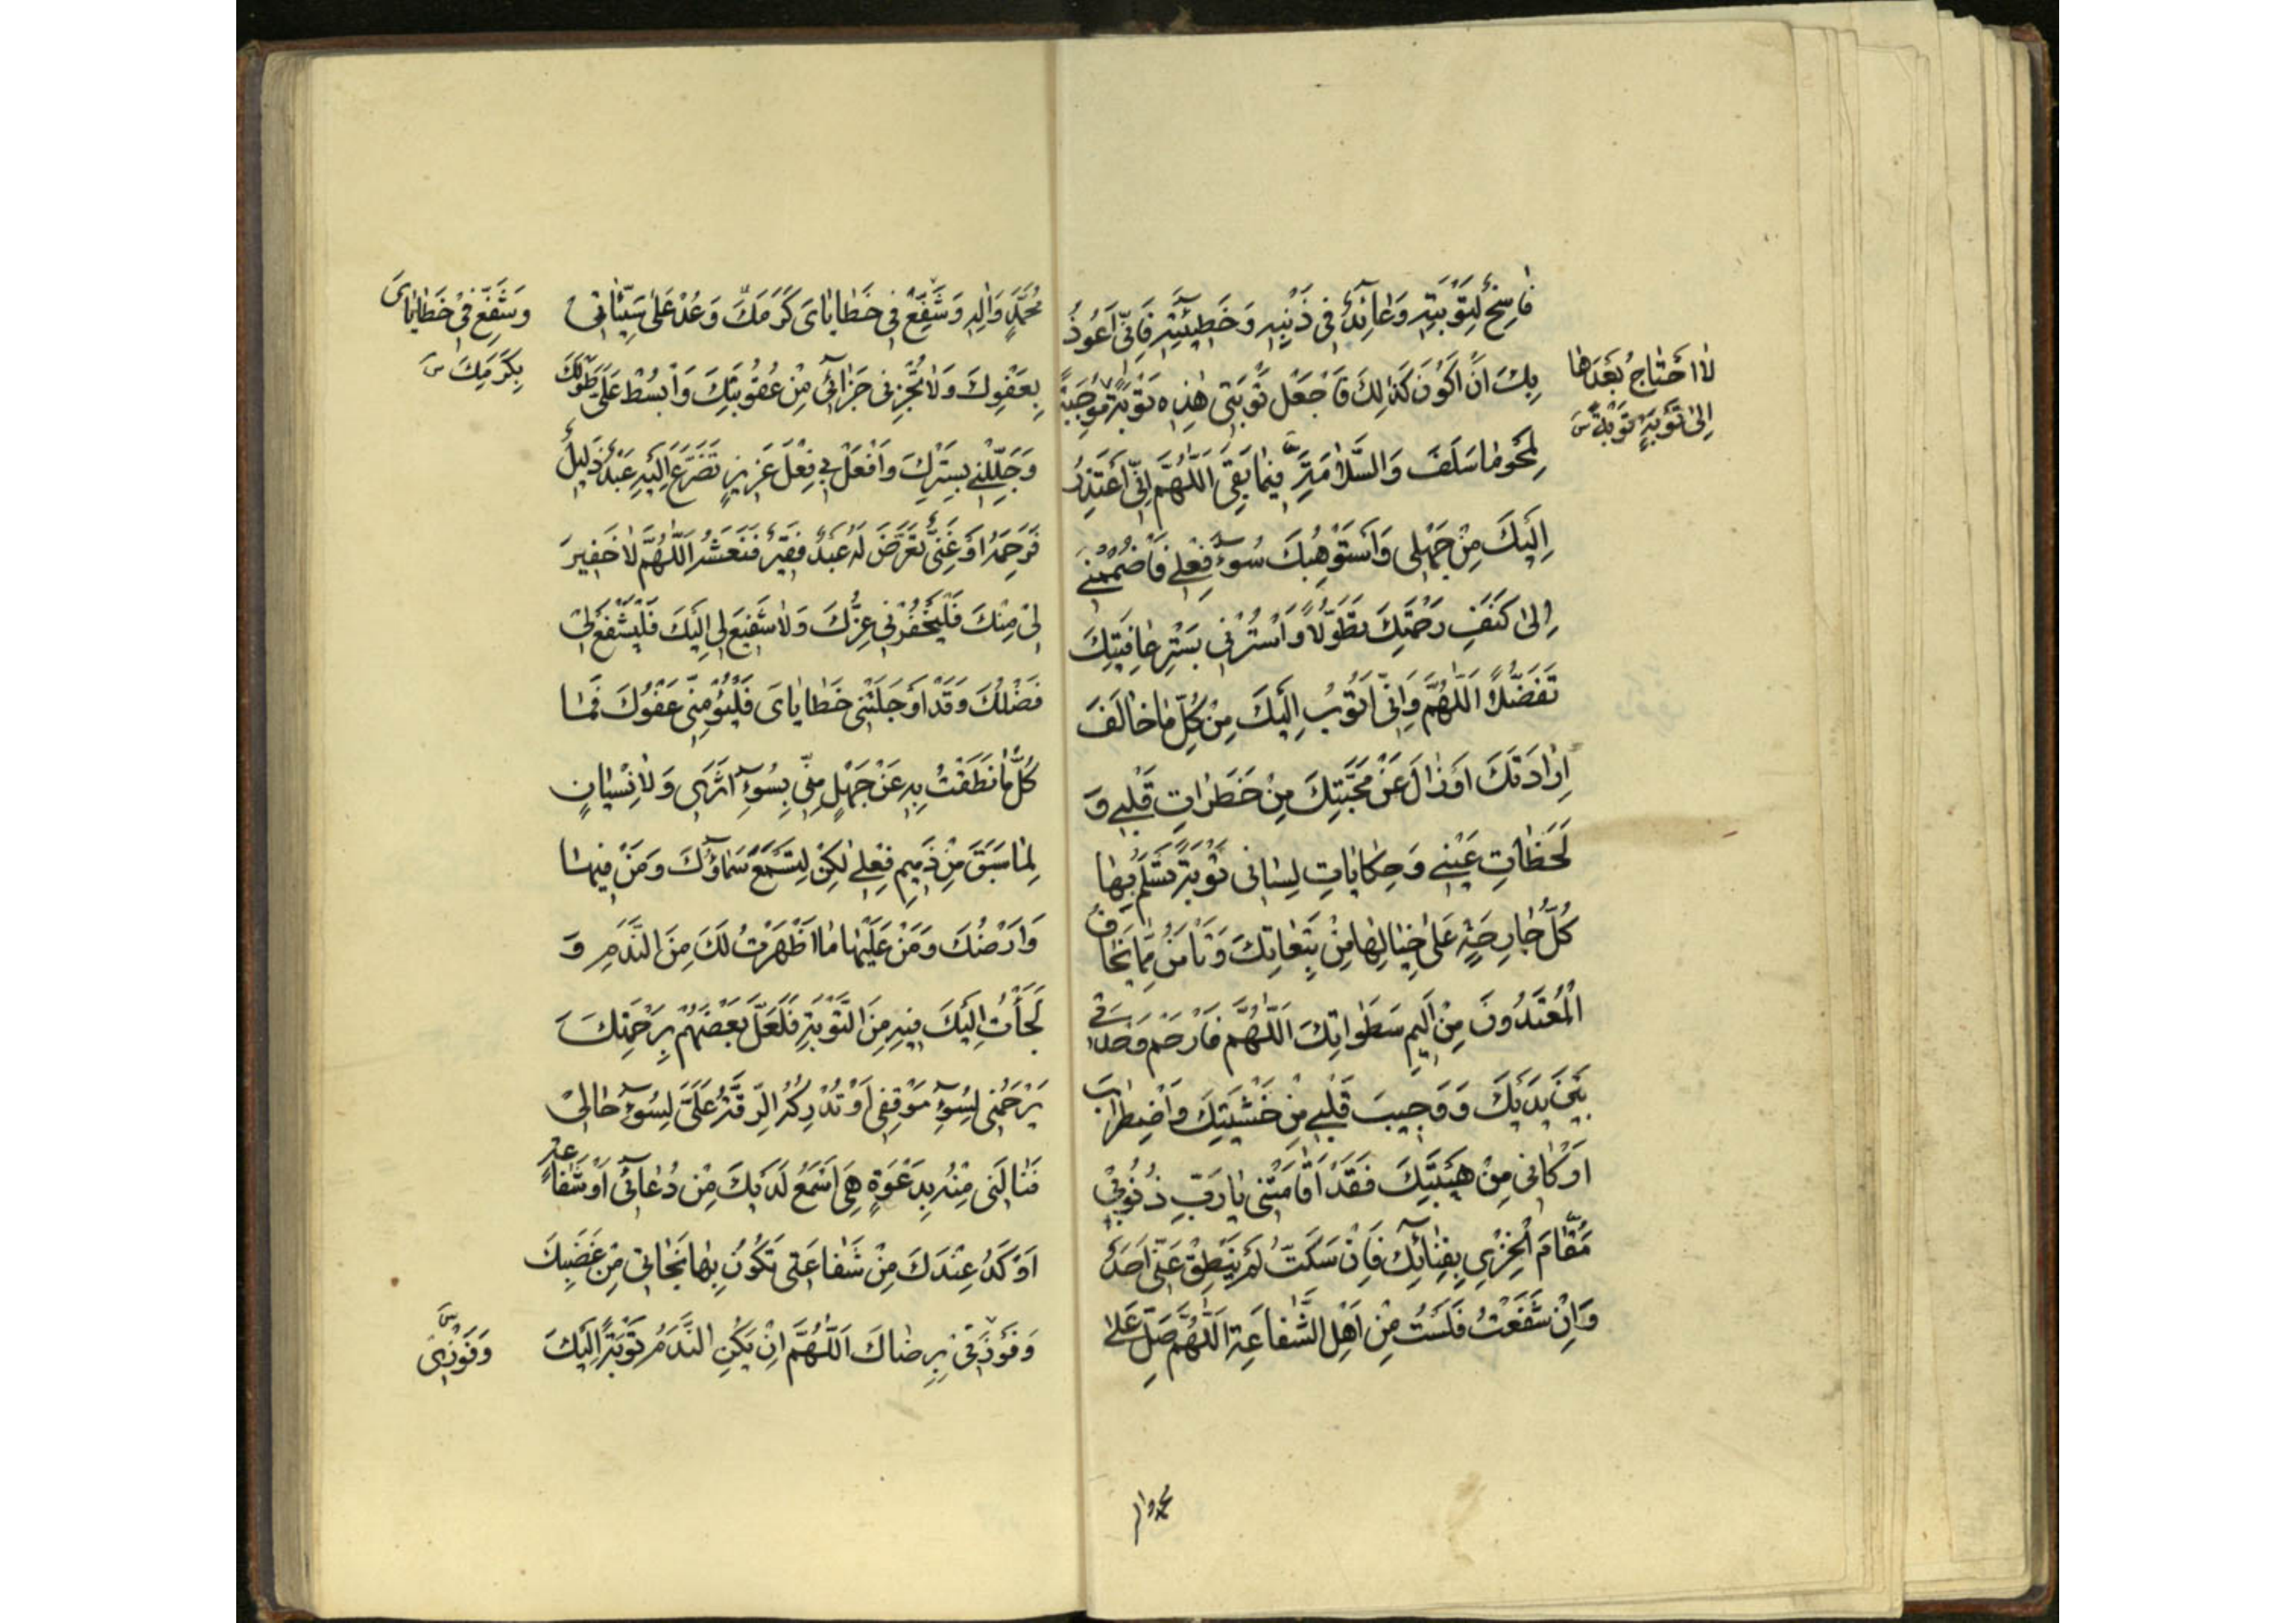 فَاسِخٌ لِتَوْبَتِهِ وَعَائِدٌ فِي ذَنْبِهِ وَخَطِيئَتِهِ فَاِنّي اَعُوذُ
بِكَ اَنْ اَكُونَ كَذٰلِكَ فَاجْعَلْ تَوْبَتِي هٰذِهِ تَوْبَةً مُوجِبَةً
لِمَحْوِ مٰا سَلَفَ وَالسَّلٰامَةِ فِيمٰا بَقِيَ اَللّٰهُمَّ اِنّي اَعْتَذِرُ
اِلَيْكَ مِنْ جَهْلِي وَاَسْتَوْهِبُكَ سُوءَ فِعْلِي فَاضْمُمْنِي
اِلىٰ كَنَفِ رَحْمَتِكَ تَطَوُّلاً وَاسْتُرْنِي بِسَتْرِ عٰافِيَتِكَ
تَفَضُّلاً اَللّٰهُمَّ وَاِنّي اَتُوبُ اِلَيْكَ مِنْ كُلِّ مٰا خٰالَفَ
اِرٰادَتَكَ اَوْ زٰالَ عَنْ مَحَبَّتِكَ مِنْ خَطَرٰاتِ قَلْبِي وَ
لَحَظٰاتِ عَيْنِي وَحِكٰايٰاتِ لِسٰانِي تَوْبَةً تَسْلَمُ بِهٰا
كُلُّ جٰارِحَةٍ عَلىٰ حِيٰالِهٰا مِنْ تَبِعٰاتِكَ وَتَأْمَنُ مِمّٰا يَخٰافُ
الْمُعْتَدُونَ مِنْ اَلِيمِ سَطَوٰاتِكَ اَللّٰهُمَّ فَارْحَمْ وَحْدَتِي
بَيْنَ يَدَيْكَ وَوَجِيبَ قَلْبِي مِنْ خَشْيَتِكَ وَاضْطِرٰابَ
اَرْكٰانِي مِنْ هَيْبَتِكَ فَقَدْ اَقٰامَتْنِي يٰا رَبِّ ذُنُوبِي
مَقٰامَ الْخِزْيِ بِفِنٰائِكَ فَاِنْ سَكَتُّ لَمْ يَنْطِقْ عَنّي اَحَدٌ
وَاِنْ شَفَعْتُ فَلَسْتُ مِنْ اَهْلِ الشَّفٰاعَةِ اَللّٰهُمَّ صَلِّ عَلىٰ
لٰا اَحْتٰاجُ بَعْدَهٰا
اِلىٰ تَوْبَةٍ تَوْبَةً س
محمد واله
مُحَمَّدٍ وَاٰلِهِ وَشَفِّعْ فِي خَطٰايٰايَ كَرَمَكَ وَعُدْ عَلىٰ سَيِّئٰاتِي
بِعَفْوِكَ وَلٰا تَجْزِنِي جَزٰائِي مِنْ عُقُوبَتِكَ وَابْسُطْ عَلَيَّ طَوْلَكَ
وَجَلِّلْنِي بِسِتْرِكَ وَافْعَلْ بِي فِعْلَ عَزِيزٍ تَضَرَّعَ اِلَيْهِ عَبْدٌ ذَلِيلٌ
فَرَحِمَهُ اَوْ غَنِيٍّ تَعَرَّضَ لَهُ عَبْدٌ فَقِيرٌ فَنَعَشَهُ اَللّٰهُمَّ لٰا خَفِيرَ
لِي مِنْكَ فَلْيَخْفُرْنِي عِزُّكَ وَلٰا شَفِيعَ لِي اِلَيْكَ فَلْيَشْفَعْ لِي
فَضْلُكَ وَقَدْ اَوْجَلَتْنِي خَطٰايٰايَ فَلْيُؤْمِنّي عَفْوُكَ فَمٰا
كُلُّ مٰا نَطَقْتُ بِهِ عَنْ جَهْلٍ مِنّي بِسُوءِ اَثَرِي وَلٰا نِسْيٰانٍ
لِمٰا سَبَقَ مِنْ ذَمِيمِ فِعْلِي لٰكِنْ لِتَسْمَعَ سَمٰاؤُكَ وَمَنْ فِيهٰا
وَاَرْضُكَ وَمَنْ عَلَيْهٰا مٰا اَظْهَرْتُ لَكَ مِنَ النَّدَمِ وَ
لَجَأْتُ اِلَيْكَ فِيهِ مِنَ التَّوْبَةِ فَلَعَلَّ بَعْضَهُمْ بِرَحْمَتِكَ
يَرْحَمُنِي لِسُوءِ مَوْقِفِي اَوْ تُدْرِكُهُ الرِّقَّةُ عَلَيَّ لِسُوءِ حٰالِي
فَيَنٰالَنِي مِنْهُ بِدَعْوَةٍ هِيَ اَسْمَعُ لَدَيْكَ مِنْ دُعٰائِي اَوْ شَفٰاعَةٍ
اَوْكَدُ عِنْدَكَ مِنْ شَفٰاعَتِي تَكُونُ بِهٰا نَجٰاتِي مِنْ غَضَبِكَ
وَفَوْزَتِي بِرِضٰاكَ اَللّٰهُمَّ اِنْ يَكُنِ النَّدَمُ تَوْبَةً اِلَيْكَ
وَشَفِّعْ فِي خَطٰايٰايَ
بِكَرَمِكَ س
وَفَوْزِي س